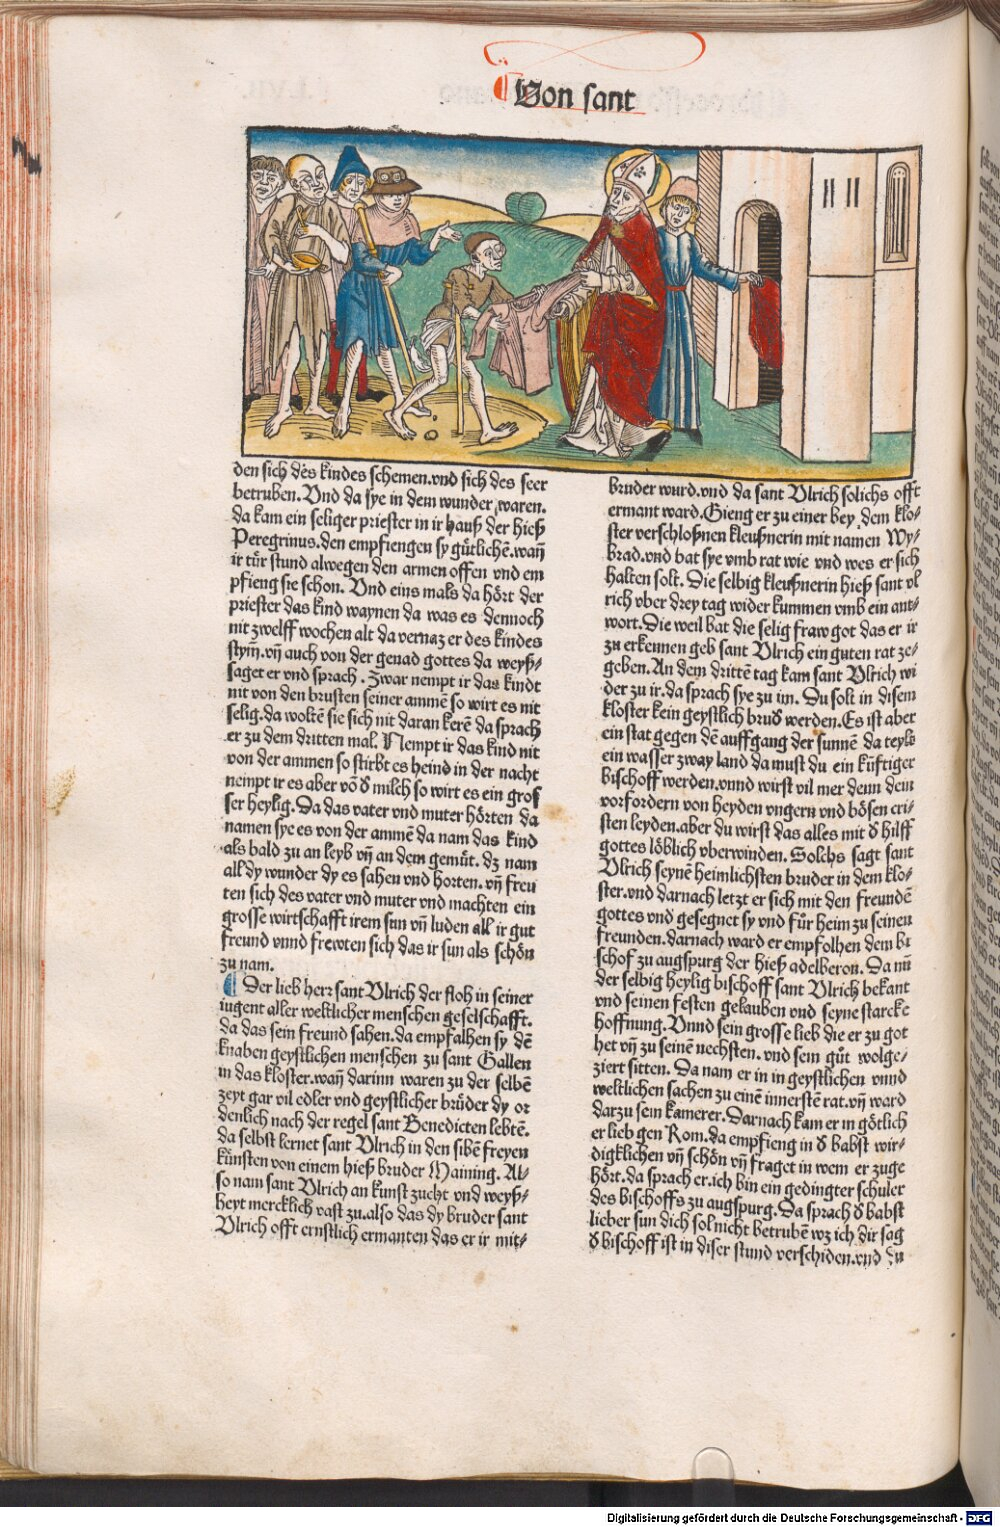 Von sant
den sich des kindes schemen.vnd sich des seer
betruben. Vnd da sye in dem wunder waren.
da kam ein seliger priester in ir hauß der hieß
Peregrinus.den empfiengen sy gůtlichē.wañ
ir tür stund alwegen den armen offen vnd em
pfieng sie schon. Vnd eins mals da hört der
priester das kind waynen da was es dennoch
nit zwelff wochen alt da vernaz er des kindes
stym̄.vñ auch von der genad gottes da weyß-
saget er vnd sprach. Zwar nempt ir das kindt
nit von den brusten seiner ammē so wirt es nit
selig.da woltē sie sich nit daran kerē da sprach
er zu dem dritten mal. Nempt ir das kind nit
von der ammen so stirbt es heind in der nacht
nempt ir es aber vō d milch so wirt es ein gros
ser heylig. Da das vater vnd muter hörten da
namen sye es von der ammē da nam das kind
als bald zu an leyb vñ an dem gemüt. dz nam
all dy wunder dy es sahen vnd horten. vñ freu
ten sich des vater vnd muter vnd machten ein
grosse wirtschafft irem sun vñ luden all ir gut
freund vnnd frewten sich das ir sun als schön
zu nam.
Der lieb herr sant Vlrich der floh in seiner
iugent aller weltlicher menschen geselschafft.
da das sein freund sahen.da empfalhen sy dē
knaben geystlichen menschen zu sant Gallen
in das kloster.wañ darinn waren zu der selbē
zeyt gar vil edler vnd geystlicher brüder dy or
denlich nach der regel sant Benedicten lebtē.
da selbst lernet sant Vlrich in den sibē freyen
künsten von einem hieß bruder Maining. Al-
so nam sant Vlrich an kunst zucht vnd weyß-
heyt mercklich vast zu.also das dy bruder sant
Vlrich offt ernstlich ermanten das er ir mit-
bruder wurd.vnd da sant Vlrich solichs offt
ermant ward. Gieng er zu einer bey dem klo-
ster verschloßnen kleußnerin mit namen Wy-
brad.vnd bat sye vmb rat wie vnd wes er sich
halten solt. Die selbig kleußnerin hieß sant vl
rich vber drey tag wider kummen vmb ein ant-
wort. Die weil bat die selig fraw got das er ir
zu erkennen geb sant Vlrich ein guten rat ze-
geben. An dem drittē tag kam sant Vlrich wi
der zu ir.da sprach sye zu im. Du solt in disem
kloster kein geystlich brud werden. Es ist aber
ein stat gegen dē auffgang der sunnē da teylt
ein wasser zway land da must du ein künftiger
bischoff werden.vnnd wirst vil mer denn dein
vorfordern von heyden vngern vnd bösen cri-
sten leyden.aber du wirst das alles mit d hilff
gottes löblich vberwinden. Solchs sagt sant
Vlrich seynē heimlichsten bruder in dem klo-
ster.vnd darnach letzt er sich mit den freundē
gottes vnd gesegnet sy vnd für heim zu seinen
freunden.darnach ward er empfolhen dem bi
schof zu augspurg der hieß adelberon. Da nū
der selbig heylig bischoff sant Vlrich bekant
vnd seinen festen gelauben vnd seyne starcke
hoffnung. Vnnd sein grosse lieb die er zu got
het vñ zu seinē nechsten.vnd sein güt wolge-
ziert sitten. Da nam er in in geystlichen vnnd
weltlichen sachen zu einē innerstē rat.vñ ward
darzu sein kamerer. Darnach kam er in götlich
er lieb gen Rom.da empfieng in d babst wir-
digklichen vñ schön vñ fraget in wem er zuge
hört.da sprach er.ich bin ein gedingter schuler
des bischoffs zu augspurg. Da sprach d babst
lieber sun dich sol nicht betrubē wz ich dir sag
d bischoff ist in diser stund verschiden.vnd du
Digitalisierung gefördert durch die Deutsche Forschungsgemeinschaft - DFG